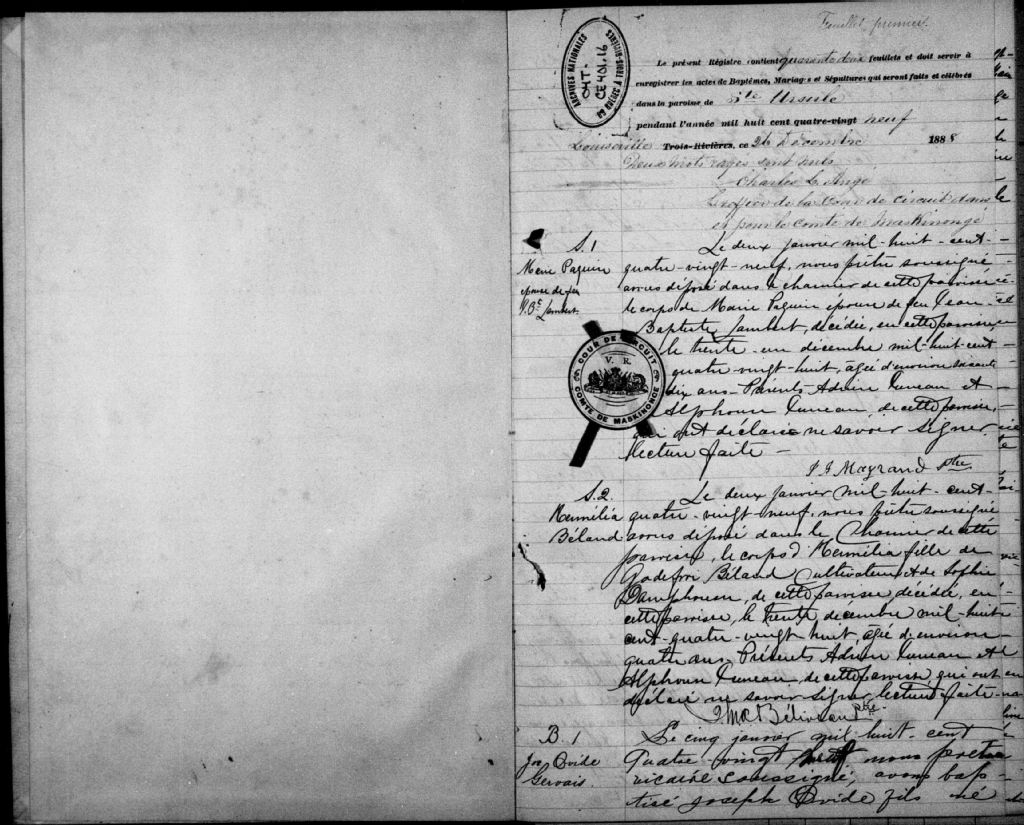 Feuillet premier.
ARCHIVES NATIONALES
CHT-
CE 401.16
Le présent Régistre contient quarante deux feuillets et doit servir à
enregistrer les actes de Baptêmes, Mariages et Sépultures qui seront faits et célébrés
dans la paroisse de Ste Ursule
pendant l'année mil huit cent quatre-vingt neuf
Louiseville Trois-Rivières, ce 26 Décembre 1888
Deux mots rayés sont nuls
Charles L. Ange
Greffier de la Cour de circuit dans
et pour le comté de Maskinongé
S. 1
Marie Paquin
épouse de feu
J. Bte Lambert
Le deux janvier mil-huit-cent-
quatre-vingt-neuf, nous prêtre soussigné
avons déposé dans le charnier de cette paroisse
le corps de Marie Paquin épouse de feu Jean-
Baptiste Lambert, décédée, en cette paroisse,
le trente-un décembre mil-huit-cent-
quatre-vingt-huit, âgée d'environ soixante
dix ans. Présents Adrien Juneau et
Alphonse Juneau, de cette paroisse,
qui ont déclaré ne savoir signer
lecture faite -
Mayrand ptre
COUR DE CIRCUIT
V. R.
COMTÉ DE MASKINONGÉ
S. 2.
Hermélia
Béland
Le deux janvier mil-huit-cent-
quatre-vingt-neuf, nous prêtre soussigné
avons déposé dans le Charnier de cette
paroisse, le corps d'Hermélia fille de
Godefroi Béland Cultivateur et de Sophie
Damphousse, de cette paroisse décédée, en
cette paroisse, le trente, décembre mil-huit-
cent-quatre-vingt huit, âgée d'environ
quatre ans. Présents Adrien Juneau et
Alphonse Juneau, de cette paroisse qui ont
déclaré ne savoir signer lecture faite-
Béliveau ptre-
B. 1
Jos. Ovide
Gervais.
Le cinq janvier mil-huit-cent
Quatre-vingt neuf nous prêtre
vicaire soussigné, avons bap-
tisé Joseph Ovide fils né